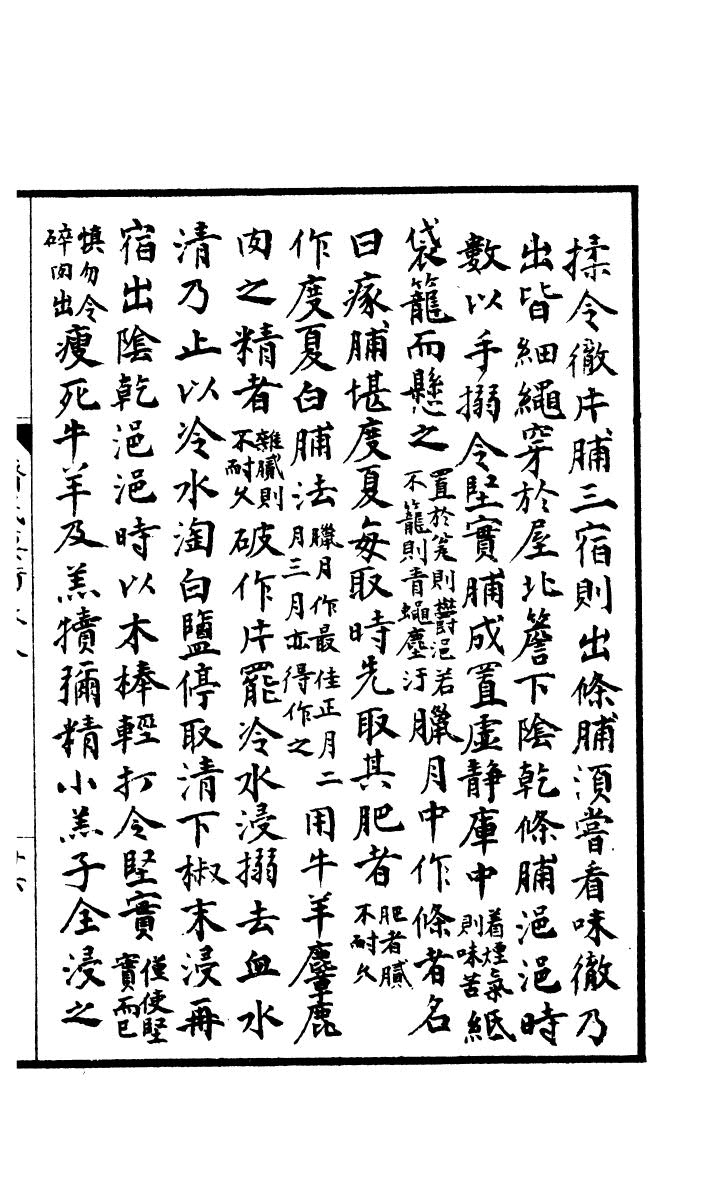 揉令徹片脯三宿則出條脯須嘗看味徹乃
出皆細繩穿於屋北簷下陰乾條脯浥浥時
數以手搦令堅實脯成置虛靜庫中着煙氣則味苦紙
袋籠而懸之置於瓮則鬱浥若不籠則青蠅塵汙臘月中作條者名
曰瘃脯堪度夏每取時先取其肥者肥者膩不耐久
作度夏白脯法臘月作最佳正月二月三月亦得作之用牛羊麞鹿
肉之精者雜膩則不耐久破作片罷冷水浸搦去血水
清乃止以冷水淘白鹽停取清下椒末浸再
宿出陰乾浥浥時以木棒輕打令堅實僅使堅實而已
慎勿令碎肉出瘦死牛羊及羔犢彌精小羔子全浸之